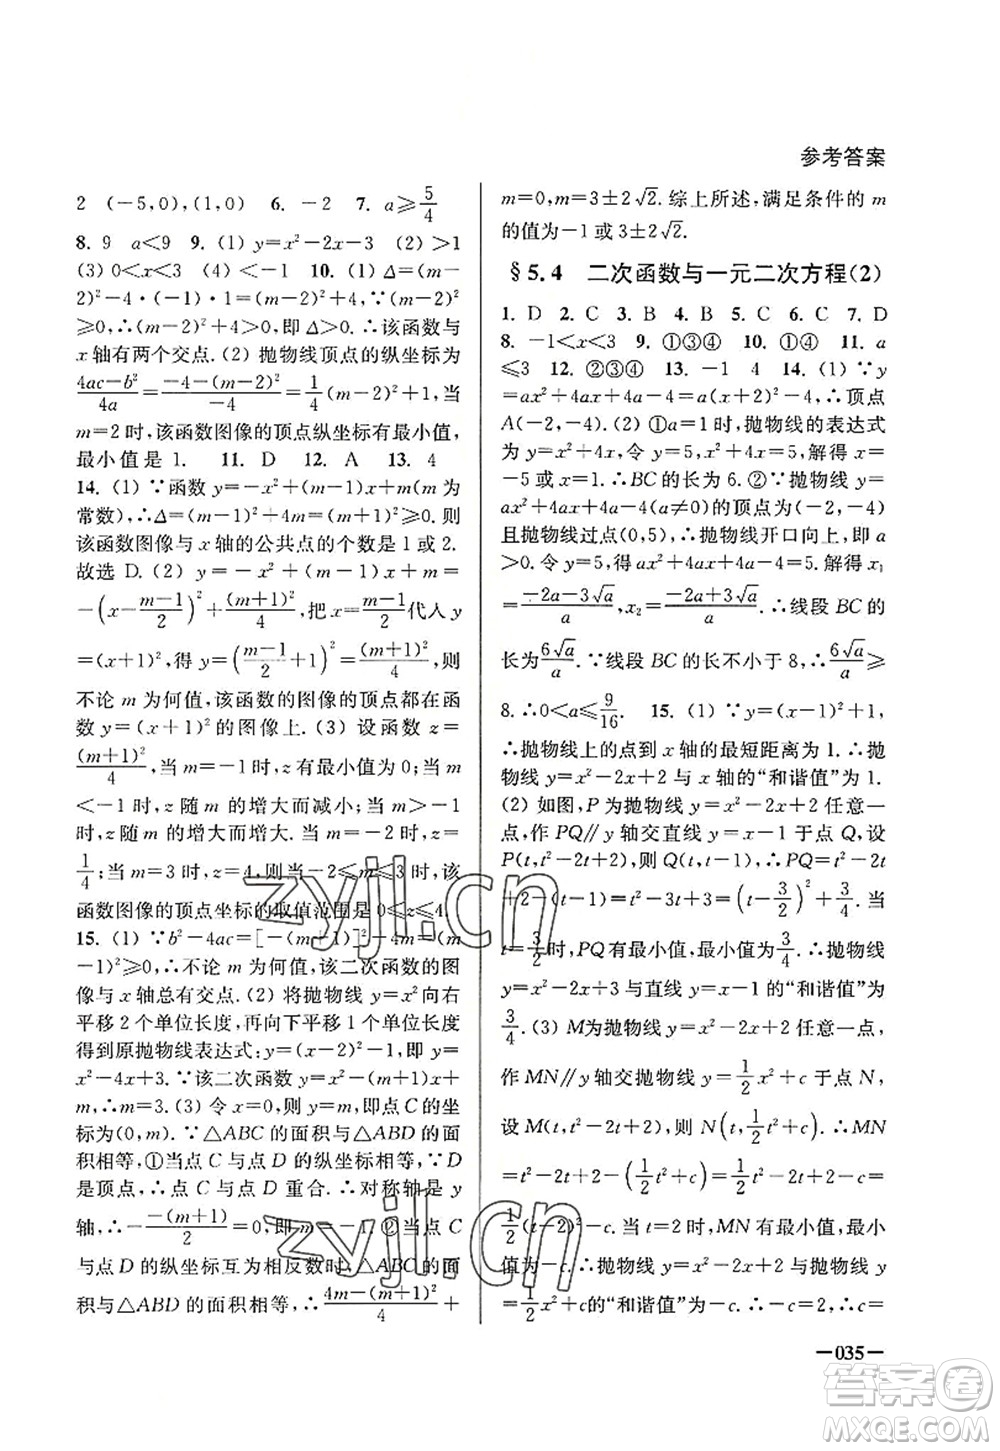 参考答案
2 (-5,0),(1,0) 6. -2 7. a≥5/4
8. 9 a<9 9. (1) y=x²-2x-3 (2) >1
(3) 0<x<3 10. (1) ∵Δ=(m-
2)²-4·(-1)·1=(m-2)²+4,∵(m-2)²
≥0,∴(m-2)²+4>0,即Δ>0.∴该函数与
x轴有两个交点.(2) 抛物线顶点的纵坐标为
(4ac-b²)/(4a)=(-4-(m-2)²)/(-4)=1/4(m-2)²+1,当
m=2时,该函数图像的顶点纵坐标有最小值,
最小值是1. 11. D 12. A 13. 4
14. (1) ∵函数y=-x²+(m-1)x+m(m为
常数),∴Δ=(m-1)²+4m=(m+1)²≥0.则
该函数图像与x轴的公共点的个数是1或2.
故选D.(2) y=-x²+(m-1)x+m=
-(x-(m-1)/2)²+(m+1)²/4,把x=(m-1)/2代入y
=(x+1)²,得y=((m-1)/2+1)²=(m+1)²/4,则
不论m为何值,该函数的图像的顶点都在函
数y=(x+1)²的图像上.(3) 设函数z=
(m+1)²/4,当m=-1时,z有最小值为0;当m
<-1时,z随m的增大而减小;当m>-1
时,z随m的增大而增大.当m=-2时,z=
1/4;当m=3时,z=4,则当-2≤m≤3时,该
函数图像的顶点坐标的取值范围是0≤z≤4.
15. (1) ∵b²-4ac=[-(m+1)]²-4m=(m
-1)²≥0,∴不论m为何值,该二次函数的图
像与x轴总有交点.(2) 将抛物线y=x²向右
平移2个单位长度,再向下平移1个单位长度
得到原抛物线表达式:y=(x-2)²-1,即y=
x²-4x+3.∵该二次函数y=x²-(m+1)x+
m,∴m=3.(3) 令x=0,则y=m,即点C的坐
标为(0,m).∵△ABC的面积与△ABD的面
积相等,①当点C与点D的纵坐标相等,∵D
是顶点,∴点C与点D重合.∴对称轴是y
轴,∴-(-(m+1))/2=0,即m=-1.②当点C
与点D的纵坐标互为相反数时,△ABC的面
积与△ABD的面积相等,∴(4m-(m+1)²)/4+
m=0,m=3±2√2.综上所述,满足条件的m
的值为-1或3±2√2.
§5.4 二次函数与一元二次方程(2)
1. D 2. C 3. B 4. B 5. C 6. C 7. D
8. -1<x<3 9. ①③④ 10. ①④ 11. a
≤3 12. ②③④ 13. -1 4 14. (1) ∵y
=ax²+4ax+4a-4=a(x+2)²-4,∴顶点
A(-2,-4).(2) ①a=1时,抛物线的表达式
为y=x²+4x,令y=5,则x²+4x=5,解得x=
-5或x=1.∴BC的长为6.②∵抛物线y=
ax²+4ax+4a-4(a≠0)的顶点为(-2,-4)
且抛物线过点(0,5),∴抛物线开口向上,即a
>0.令y=5,得ax²+4ax+4a-4=5,解得x₁
=(-2a-3√a)/a,x₂=(-2a+3√a)/a.∴线段BC的
长为6√a/a.∵线段BC的长不小于8,∴6√a/a≥
8.∴0<a≤9/16. 15. (1) ∵y=(x-1)²+1,
∴抛物线上的点到x轴的最短距离为1.∴抛
物线y=x²-2x+2与x轴的“和谐值”为1.
(2) 如图,P为抛物线y=x²-2x+2任意一
点,作PQ∥y轴交直线y=x-1于点Q,设
P(t,t²-2t+2),则Q(t,t-1),∴PQ=t²-2t
+2-(t-1)=t²-3t+3=(t-3/2)²+3/4,当t
=3/2时,PQ有最小值,最小值为3/4.∴抛物线y
=x²-2x+3与直线y=x-1的“和谐值”为
3/4.(3) M为抛物线y=x²-2x+2任意一点,
作MN∥y轴交抛物线y=1/2x²+c于点N,
设M(t,t²-2t+2),则N(t,1/2t²+c),∴MN
=t²-2t+2-(1/2t²+c)=1/2t²-2t+2-c=
1/2(t-2)²-c.当t=2时,MN有最小值,最小
值为-c.∴抛物线y=x²-2x+2与抛物线y
=1/2x²+c的“和谐值”为-c.∴-c=2.∴c=
—035—
zyjl.cn
zyjl.cn
答案圈
MXQE.COM